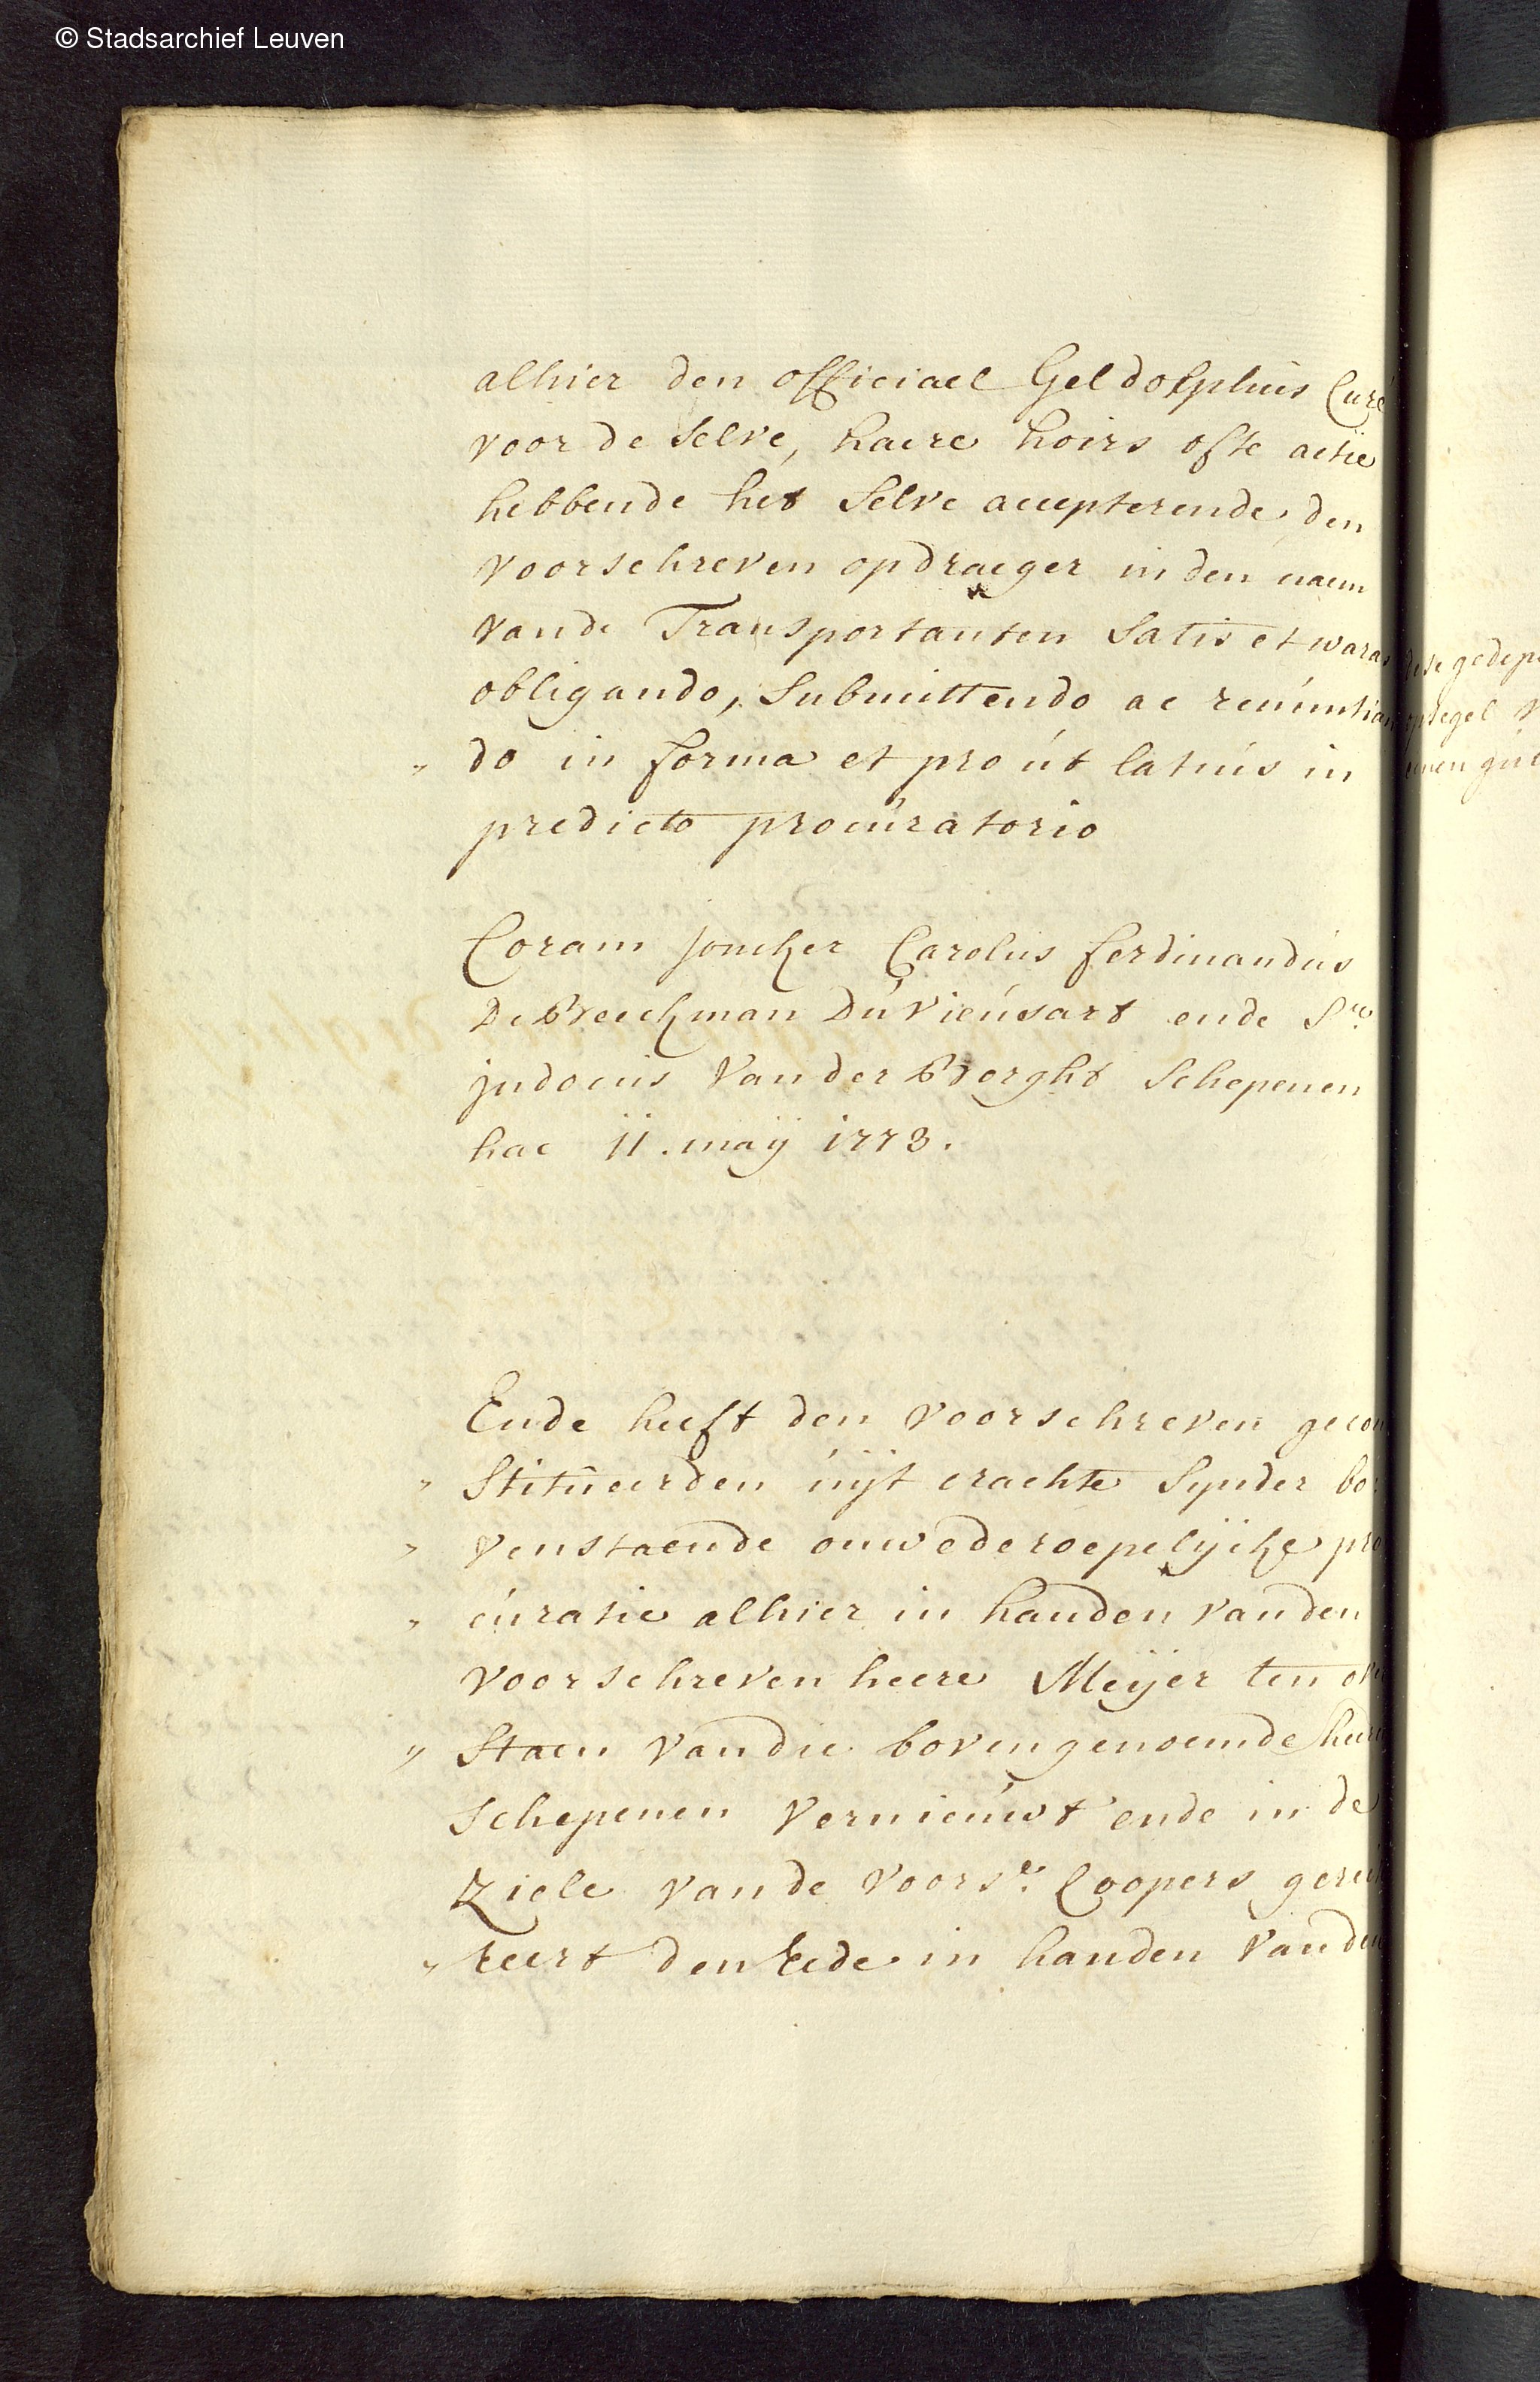 © Stadsarchief Leuven
alhier den officiael Geldolphus Curé
voor de selve, haere hoirs ofte actie
hebbende het selve accepterende, den
voorschreven opdraeger in den naem
vande Transportanten Satis et waras
obligando, Submittendo ac renúntian
" do in forma et proút latiús in
predicto procúratorio
Coram joncker Carolus ferdinandús
De Breeckman Dú Vieúsart ende Sr.
judocus Van der Borght Schepenen
hac 11. maÿ 1773.
Ende heeft den voorschreven gecon
" Stitúeerden úijt crachte Synder bo:
" venstaende onwederoepelijcke pro
" cúratie alhier in handen van den
voorschreven heere Meijer ten over
" Staen van die bovengenoemde heere
Schepenen vernieúwt ende in de
Ziele van de voorse. Coopers
" teert den Eede in handen van den
dese gedep
segel
gul